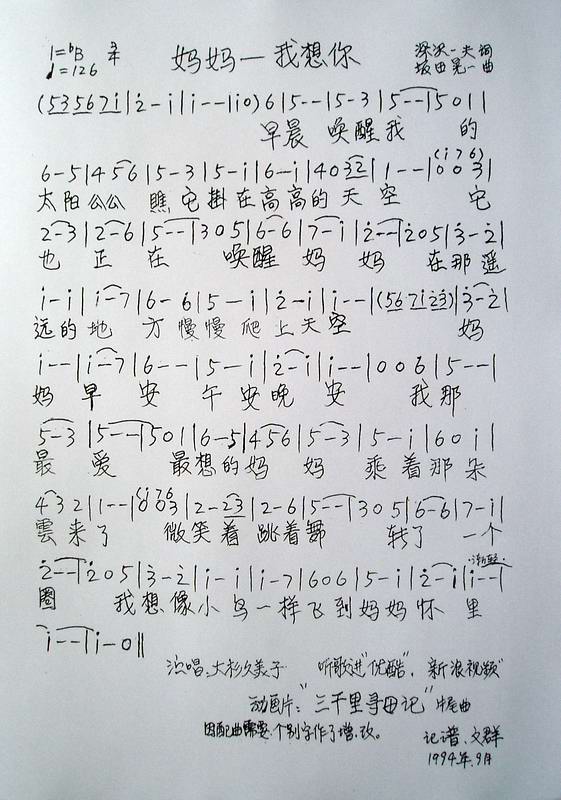 1=♭B 3/4 妈妈—我想你 深沢一夫 词
♩=126 坂田晃一 曲
(5 3 5 6 7 i | 2̇ - i | i - - | i 0) 6 | 5 - - | 5 - 3 | 5 - - | 5 0 1 |
早晨 唤醒我 的
6 - 5 | 4 5 6 | 5 - 3 | 5 - i | 6 - i | 4 0 3 2 | 1 - - | (i 7 6) 0 0 3 |
太阳公公 瞧它掛在高高的天空 它
2 - 3 | 2 - 6 | 5 - - | 3 0 5 | 6 - 6 | 7 - i | 2̇ - - | 2̇ 0 5 | 3̇ - 2̇ |
也 正 在 唤醒 妈 妈 在那遥
i - i | i - 7 | 6 - 6 | 5 - i | 2̇ - i | i - - | (5 6 7 i 2̇ 3̇) | 3̇ - 2̇ |
远的 地 方 慢慢 爬上天空 妈
i - - | i - 7 | 6 - - | 5 - i | 2̇ - i | i - - | 0 0 6 | 5 - - |
妈 早 安 午安晚 安 我那
5 - 3 | 5 - - | 5 0 1 | 6 - 5 | 4 5 6 | 5 - 3 | 5 - i | 6 0 i |
最 爱 最想的妈 妈 乘着那朵
4 3 2 | 1 - - | (i 7 6) 0 0 3 | 2 - 2 3 | 2 - 6 | 5 - - | 3 0 5 | 6 - 6 | 7 - i |
雲来了 微笑着跳着舞 转了 一个
2̇ - - | 2̇ 0 5 | 3̇ - 2̇ | i - i | i - 7 | 6 0 6 | 5 - i | 2̇ - i | i - - |
圈 我想像小鸟一样飞到妈妈怀 里
i - - | i - 0 ‖
演唱:大杉久美子 听歌进"优酷",新浪视频"
动画片:"三千里寻母记"片尾曲
因配曲需要,个别字作了增、改。
记谱、文群
1994年.9月